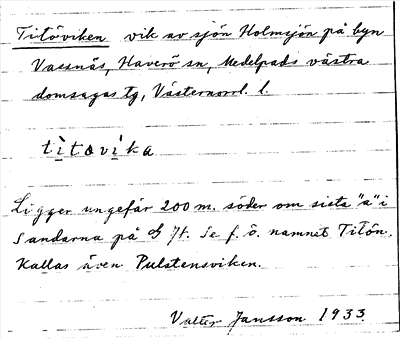 Titöviken vik av sjön Holmsjön på byn
Vassnäs, Haverö sn, Medelpads västra
domsagas tg, Västernorrl. l.
titovika
Ligger ungefär 200 m. söder om sista "a" i
Sandarna på Jt. Se f. ö. namnet Titön.
Kallas även Pulstensviken.
Valter Jansson 1933